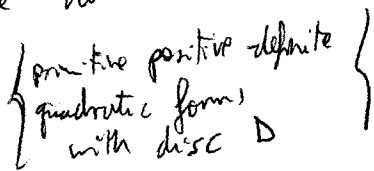 { primitive positive definite }
quadratic forms
with disc D